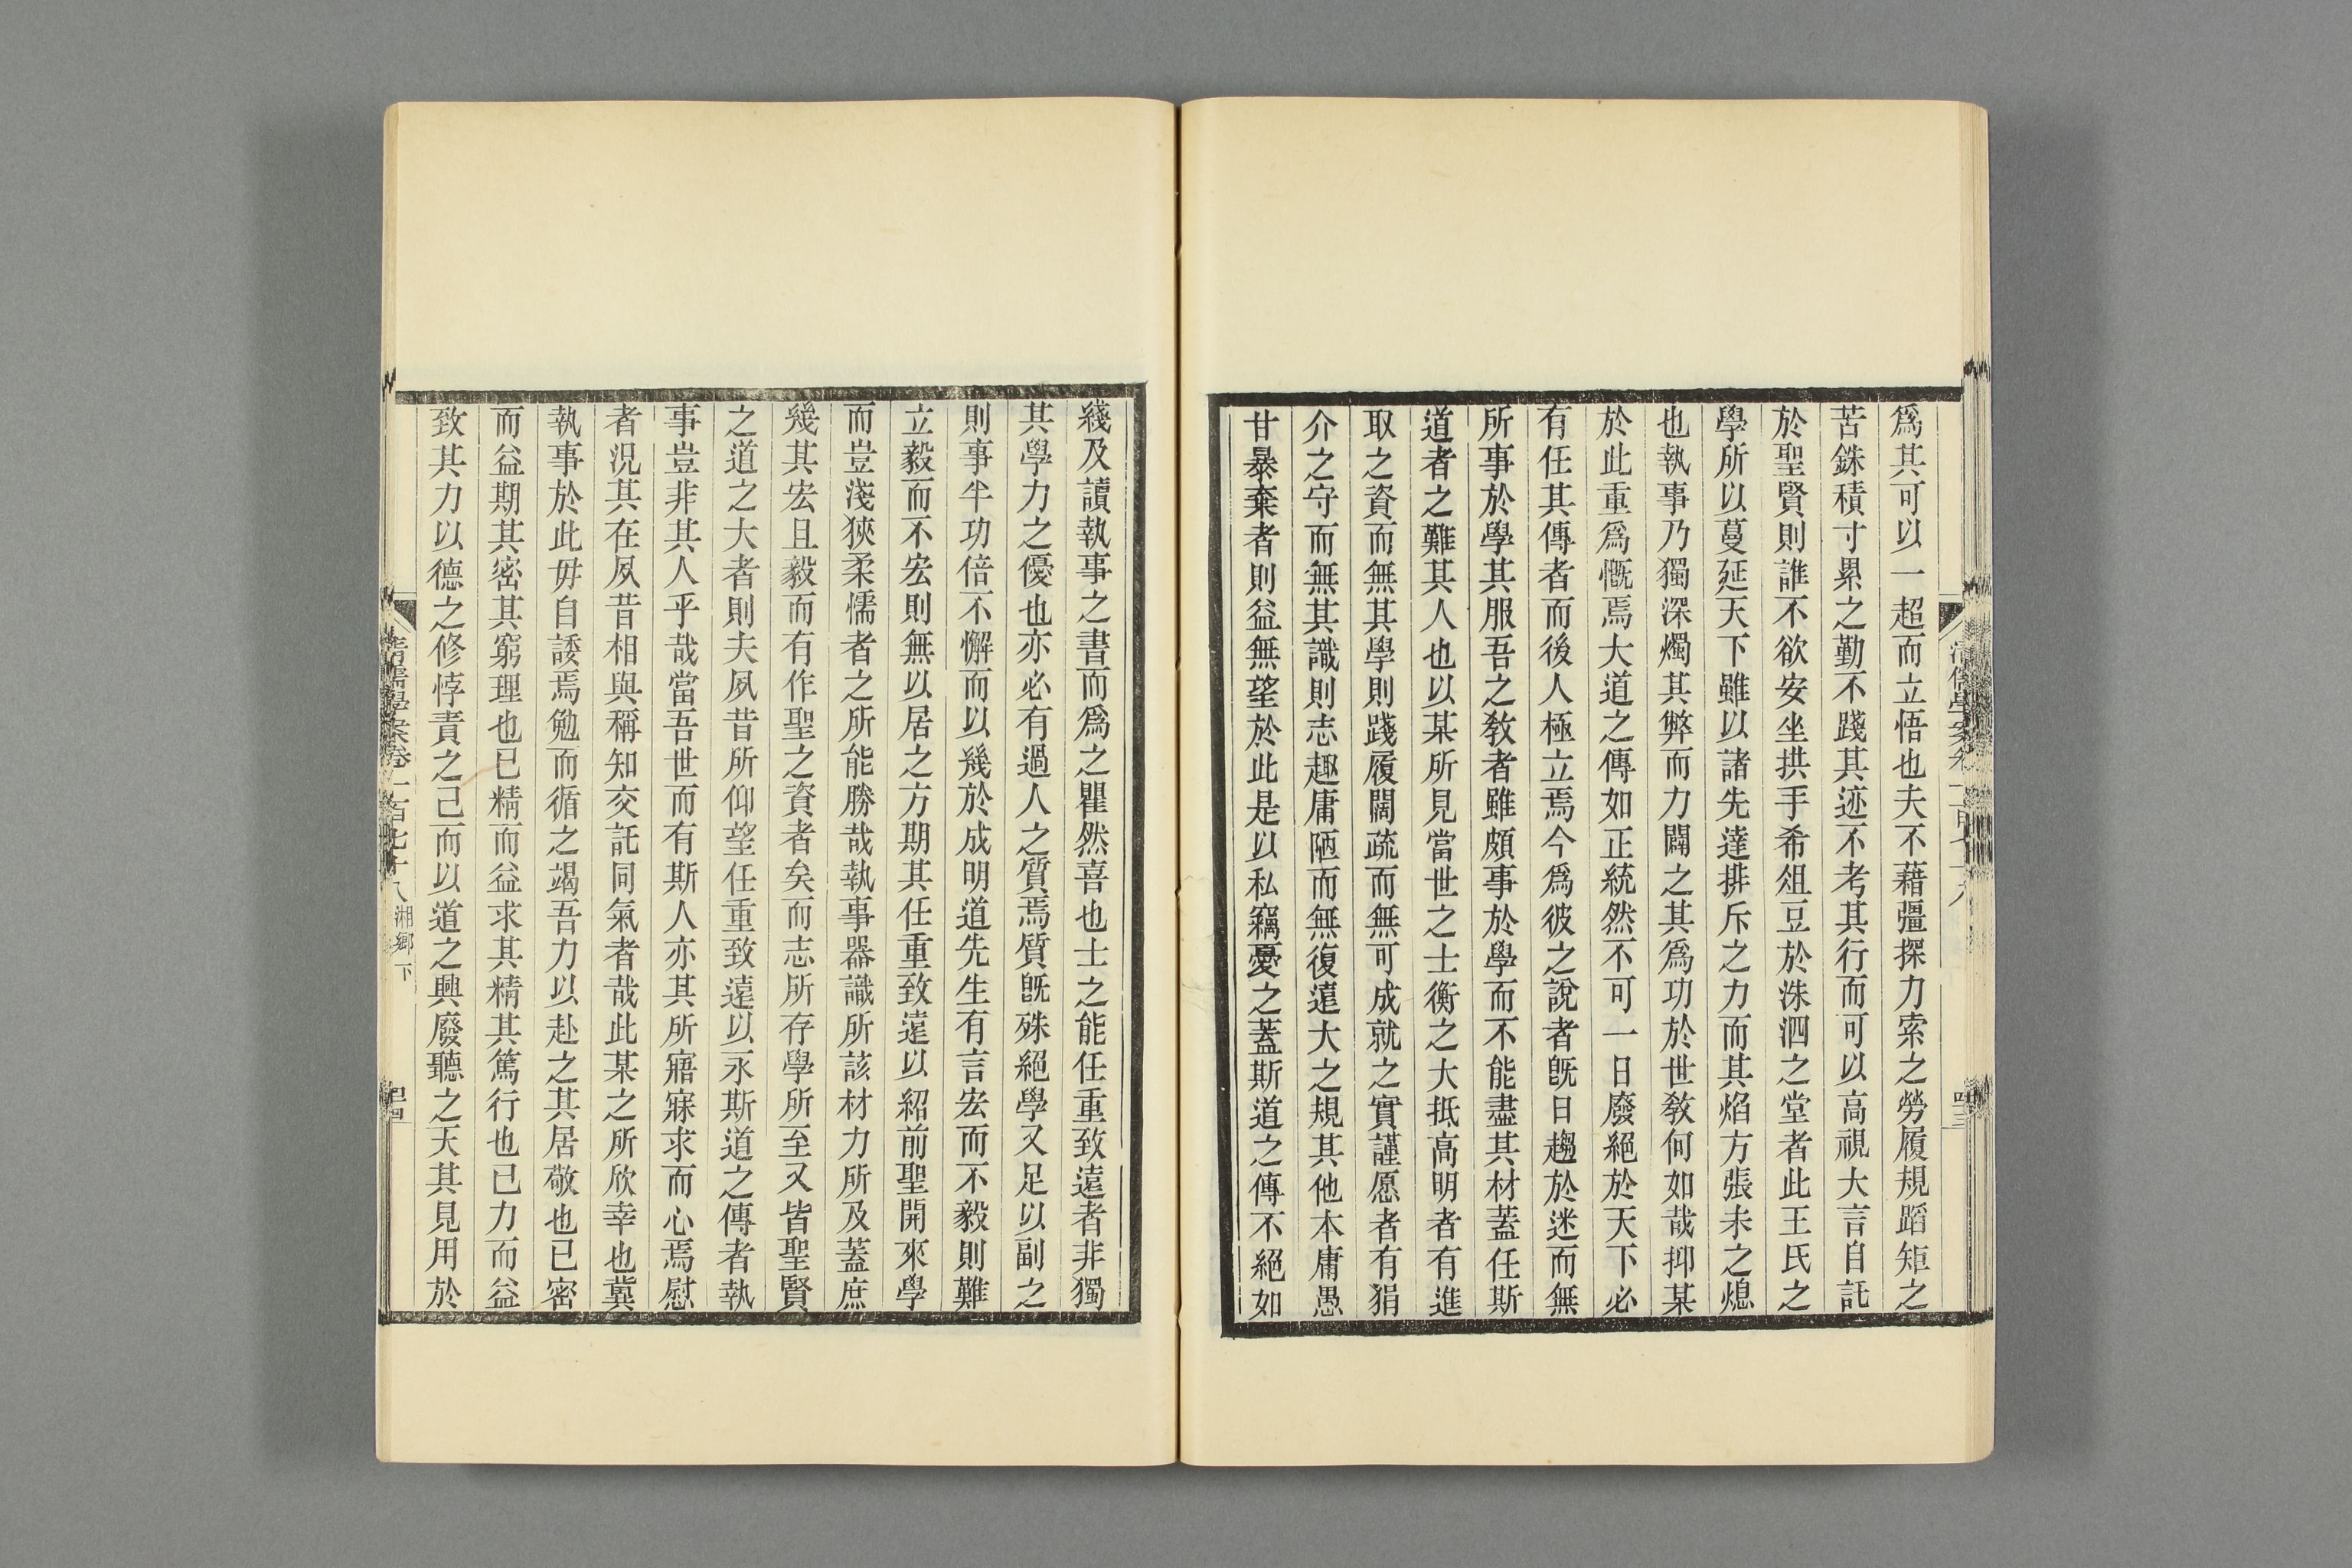 爲其可以一超而立悟也夫不藉彊探力索之勞履規蹈矩之
苦銖積寸累之勤不踐其迹不考其行而可以高視大言自託
於聖賢則誰不欲安坐拱手希俎豆於洙泗之堂者此王氏之
學所以蔓延天下雖以諸先達排斥之力而其焰方張未之熄
也執事乃獨深燭其弊而力闢之其爲功於世敎何如哉抑某
於此重爲慨焉大道之傳如正統然不可一日廢絕於天下必
有任其傳者而後人極立焉今爲彼之說者旣日趨於迷而無
所事於學其服吾之敎者雖頗事於學而不能盡其材蓋任斯
道者之難其人也以某所見當世之士衡之大抵高明者有進
取之資而無其學則踐履闊疏而無可成就之實謹愿者有狷
介之守而無其識則志趣庸陋而無復遠大之規其他本庸愚
甘暴棄者則益無望於此是以私竊憂之蓋斯道之傳不絕如
綫及讀執事之書而爲之瞿然喜也士之能任重致遠者非獨
其學力之優也亦必有過人之質焉質旣殊絕學又足以副之
則事半功倍不懈而以幾於成明道先生有言宏而不毅則難
立毅而不宏則無以居之方期其任重致遠以紹前聖開來學
而豈淺狹柔懦者之所能勝哉執事器識所該材力所及蓋庶
幾其宏且毅而有作聖之資者矣而志所存學所至又皆聖賢
之道之大者則夫夙昔所仰望任重致遠以永斯道之傳者執
事豈非其人乎哉當吾世而有斯人亦其所寤寐求而心焉慰
者況其在夙昔相與稱知交託同氣者哉此某之所欣幸也冀
執事於此毋自諉焉勉而循之竭吾力以赴之其居敬也已密
而益期其密其窮理也已精而益求其精其篤行也已力而益
致其力以德之修悖責之己而以道之興廢聽之天其見用於
清儒學案卷一百七十八 湘鄉下 四十四